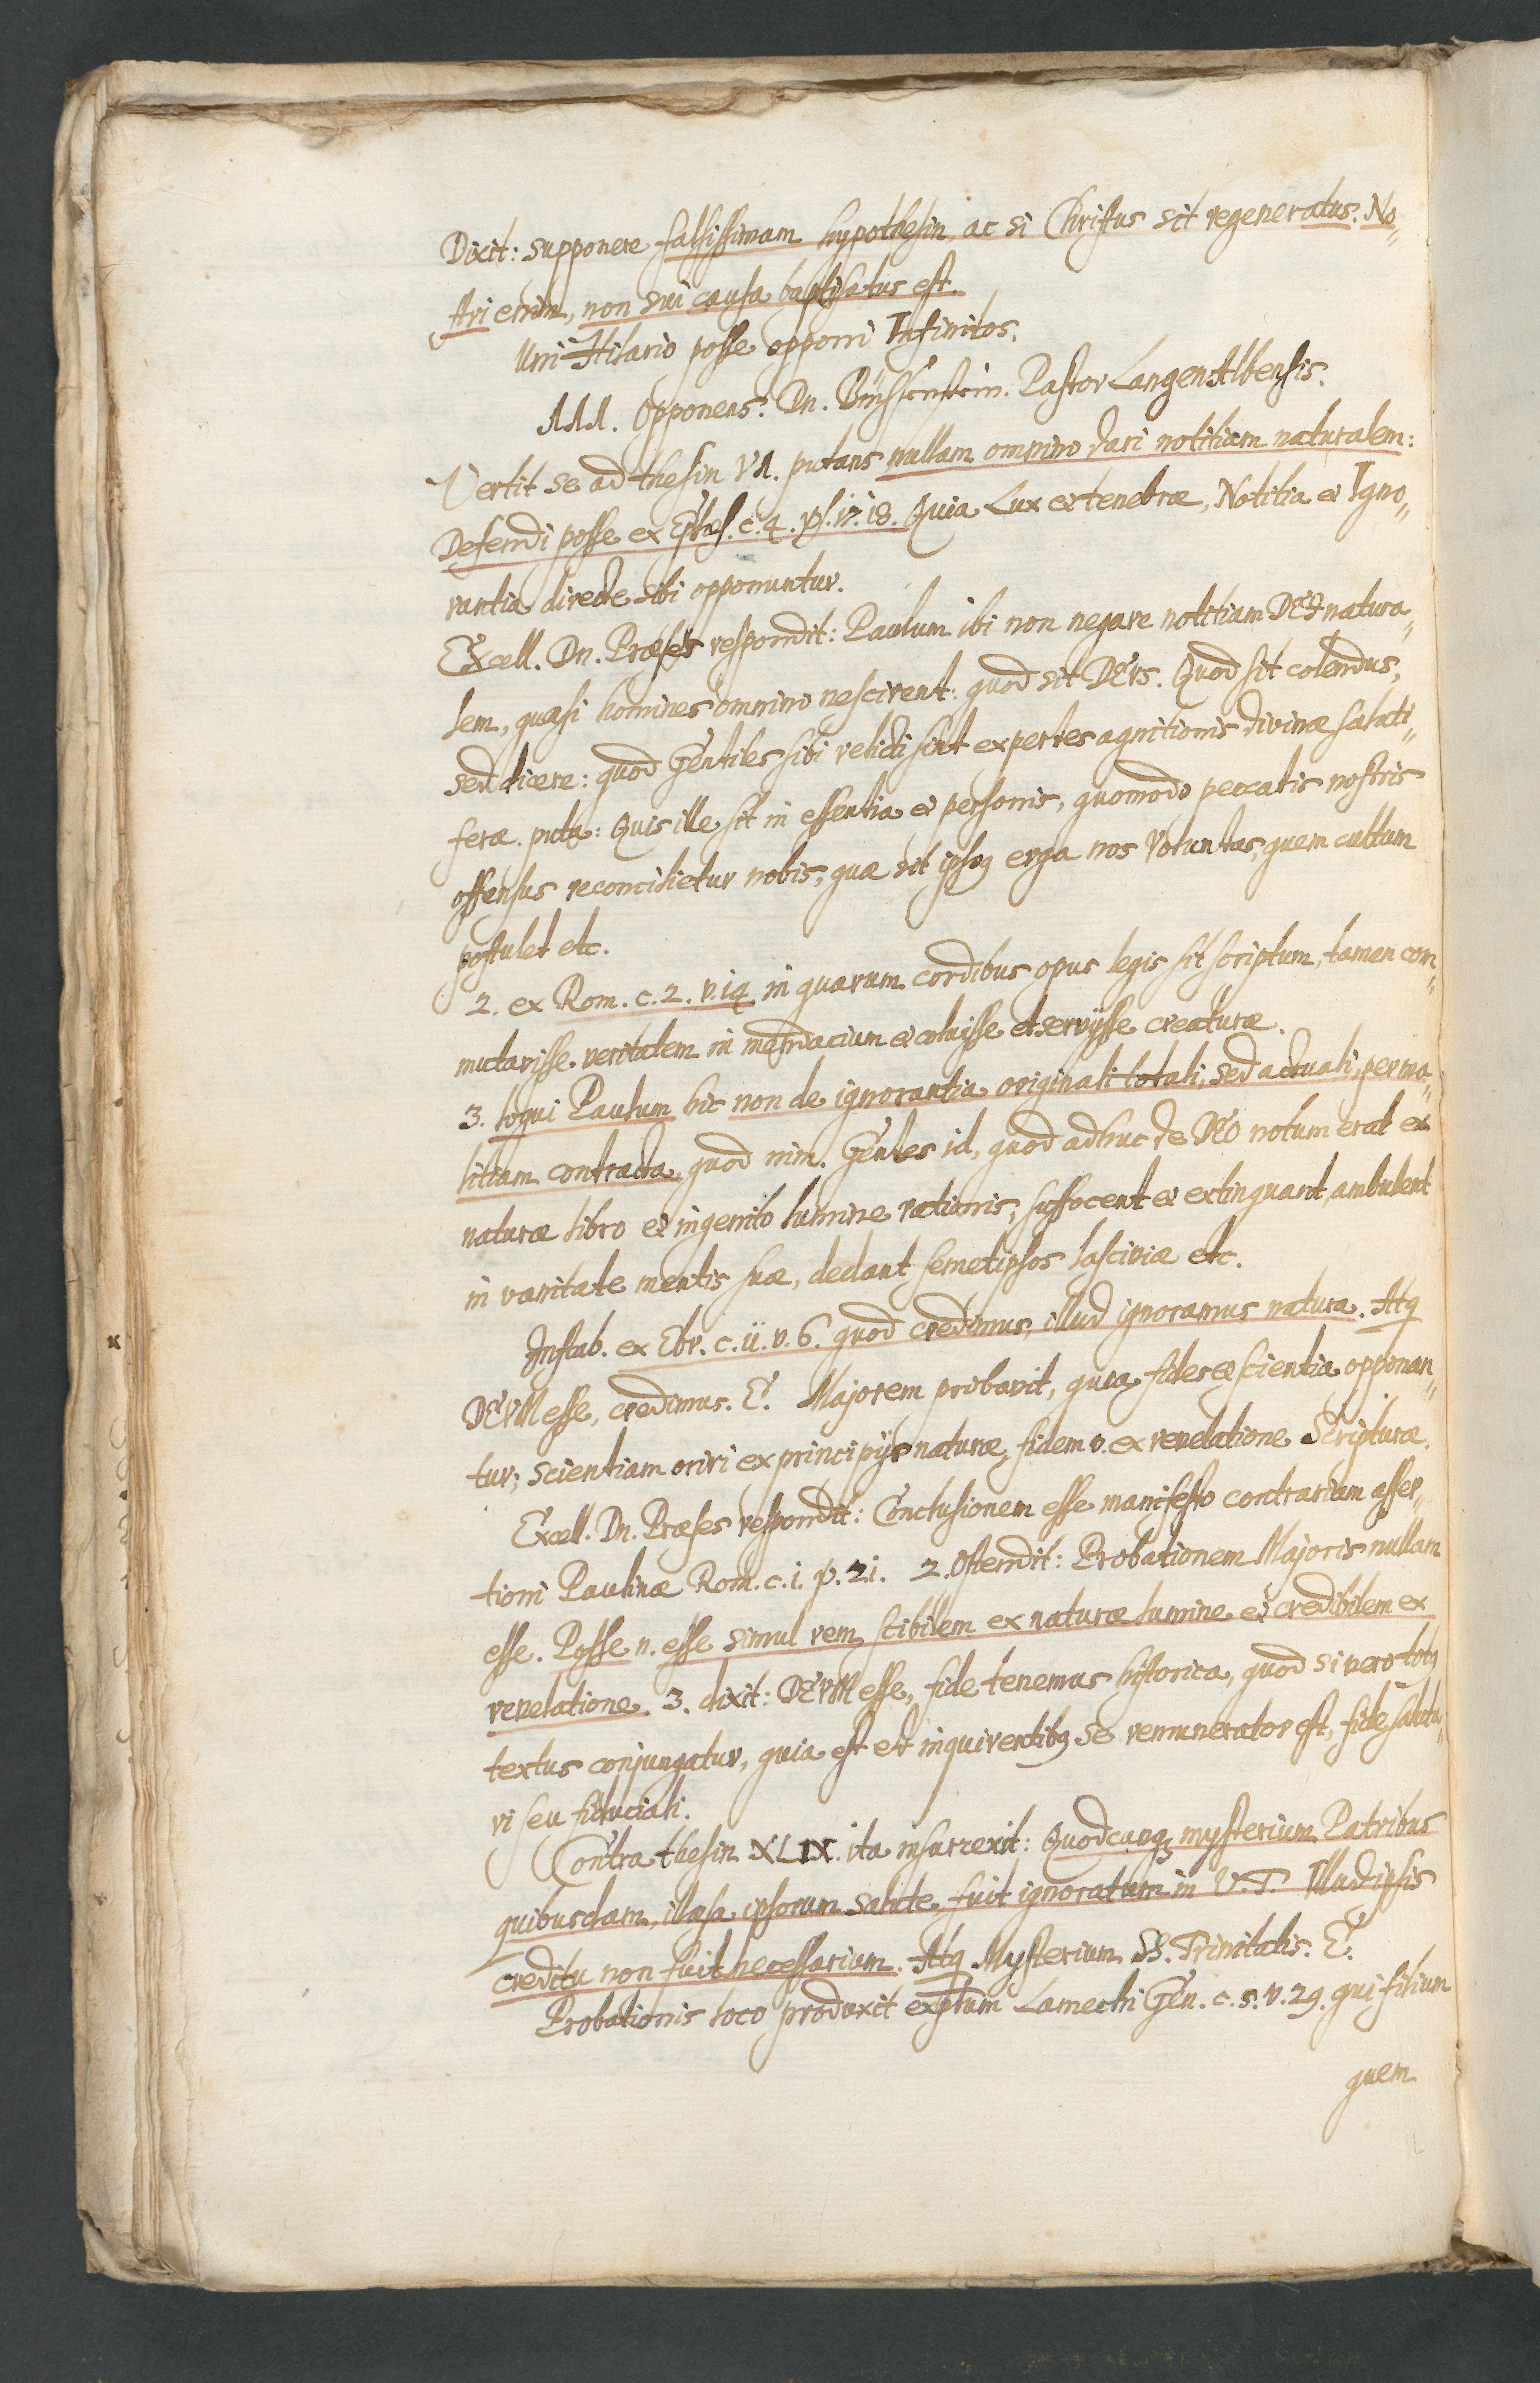 Dixit: supponere falsissimam hypothesin, ac si Christus sit regeneratus. No„
stri enim, non sui causa baptisatus est.
Uni Hilario posse opponi Infinitos.
III. Opponens: Dn. Pastor LangenAlbensis.
Vertit se ad thesin VI. putans nullam omnino dari notitiam naturalem:
Defendi posse ex Ephes. c. 4. vs. 17. 18. Quia Lux et tenebræ, Notitia et Igno„
rantia directe sibi opponuntur.
Excell. Dn. Præses respondit: Paulum ibi non negare notitiam DEI natura„
lem, quasi homines omnino nescirent: quod sit DEUS. Quod sit colendus,
sed dicere: quod Gentiles sibi relicti sint expertes agnitionis divinæ saluti„
feræ. puta: Quis ille sit in essentia et personis, quomodo peccatis nostris
offensus reconcilietur nobis, quæ sit ipsiq erga nos Voluntas, quem cultum
postulet etc.
2. ex Rom. c. 2. v. 14 in quarum cordibus opus legis sit scriptum, tamen com„
mutavisse veritatem in mendacium et coluisse et servijsse creaturæ.
3. loqui Paulum hic non de ignorantia originali totali, sed actuali, per ma„
litiam contracta, quod nim. Gentes id, quod adhuc de DEO notum erat ex
naturæ libro et ingenito lumine rationis, suffocent et extinguant, ambulent
in vanitate mentis suæ, dedant semetipsos lasciviæ etc.
Instab. ex Ebr. c. 11. v. 6. quod credimus, illud ignoramus natura. Atq
DEUM esse, credimus. E. Majorem probavit, quia fides et scientia opponan„
tur; scientiam oriri ex principijs naturæ, fidem v. ex revelatione Scripturæ.
Excell. Dn. Præses respondit: Conclusionem esse manifesto contrariam asser„
tioni Paulinæ Rom. c. 1. v. 21. 2. Ostendit: Probationem Majoris nullam
esse. Posse n. esse simul rem scibilem ex naturæ lumine et credibilem ex
revelatione. 3. dixit: DEUM esse, fide tenemus historica, quod si vero totq
textus conjungatur, quia est et inquirentibq se remunerator est, fide saluta„
ri seu fiduciali.
Contra thesin XLIX. ita insurrexit: Quodcunq mysterium Patribus
quibusdam, illæsa ipsorum salute fuit ignoratum in V. T. Illud ipsis
creditu non fuit necessarium. Atq Mysterium SS. Trinitatis. E.
Probationis loco produxit explum Lamechi Gen. c. 5. v. 29. qui filium
quem